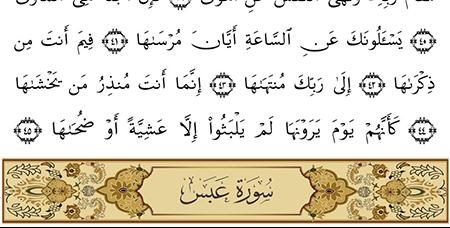 مَقَامَ رَبِّهِۦ وَنَهَى ٱلنَّفْسَ عَنِ ٱلْهَوَىٰ فَإِنَّ ٱلْجَنَّةَ هِىَ ٱلْمَأْوَىٰ
﴿٤٠﴾ يَسْـَٔلُونَكَ عَنِ ٱلسَّاعَةِ أَيَّانَ مُرْسَىٰهَا ﴿٤١﴾ فِيمَ أَنتَ مِن
ذِكْرَىٰهَآ ﴿٤٢﴾ إِلَىٰ رَبِّكَ مُنتَهَىٰهَآ ﴿٤٣﴾ إِنَّمَآ أَنتَ مُنذِرُ مَن يَخْشَىٰهَا
﴿٤٤﴾ كَأَنَّهُمْ يَوْمَ يَرَوْنَهَا لَمْ يَلْبَثُوٓا۟ إِلَّا عَشِيَّةً أَوْ ضُحَىٰهَا ﴿٤٥﴾
سُورَةُ عَبَسَ